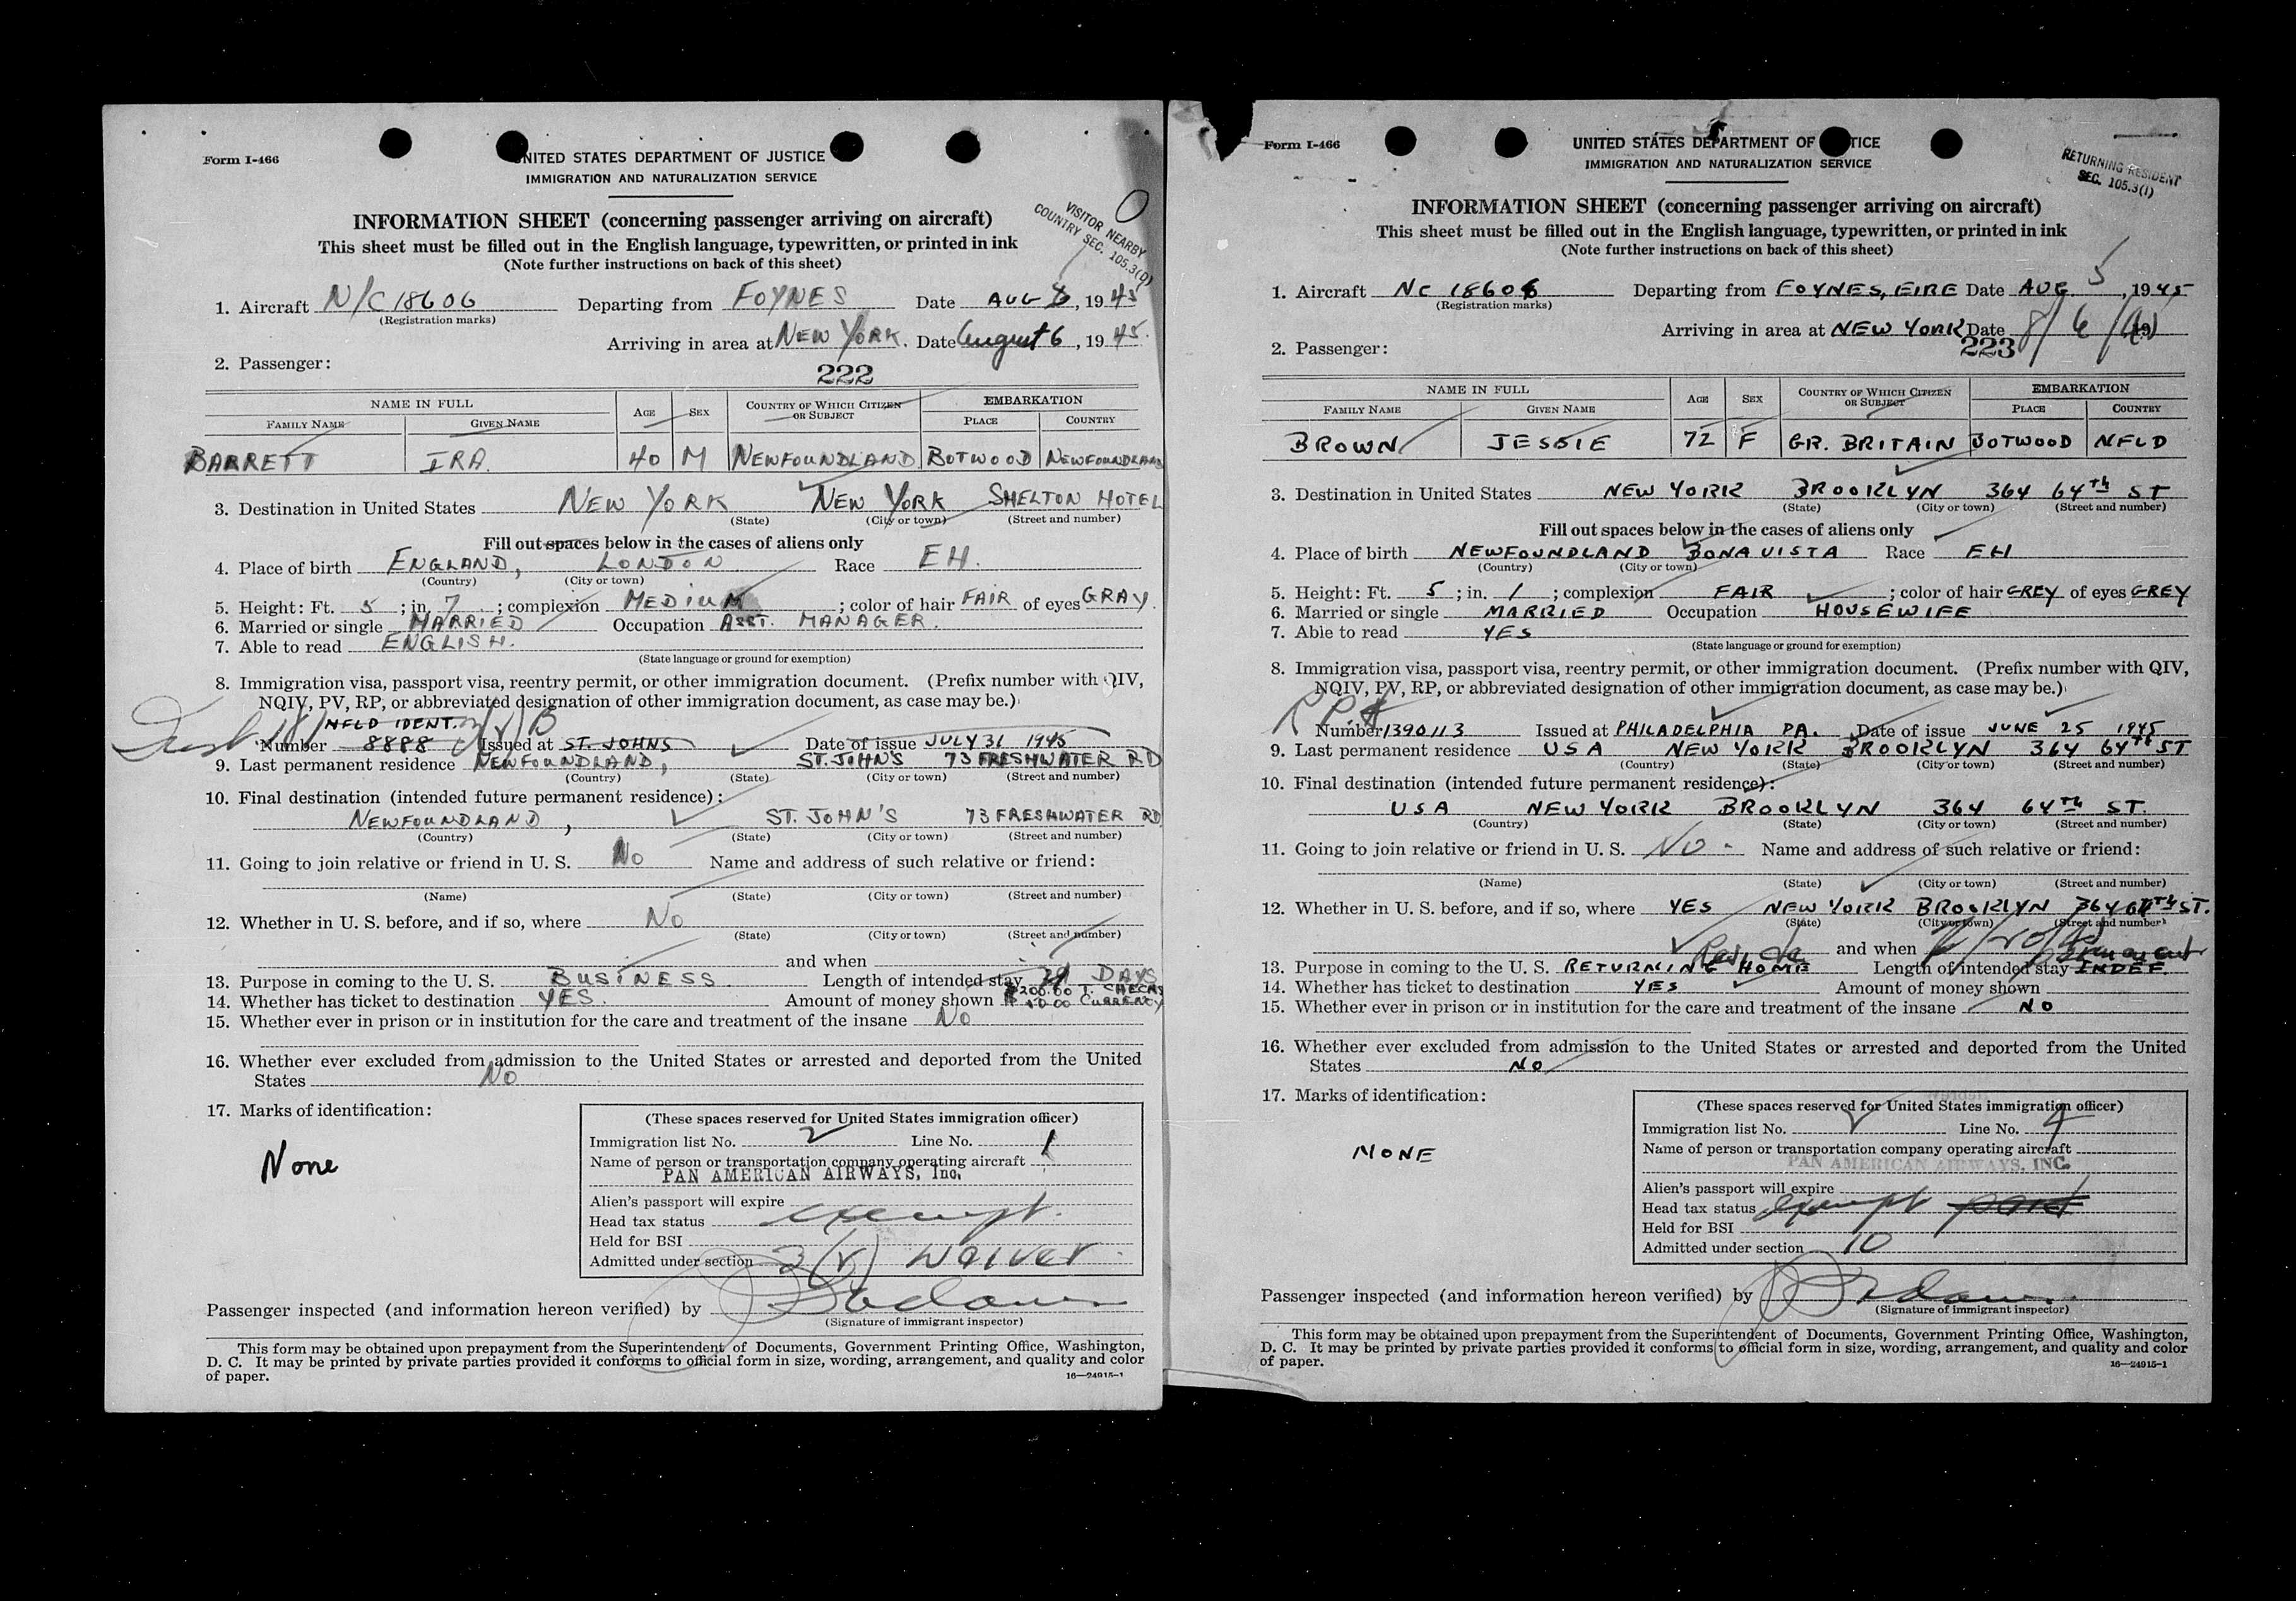 Form I-466
UNITED STATES DEPARTMENT OF JUSTICE
IMMIGRATION AND NATURALIZATION SERVICE
VISITOR NEARBY
COUNTRY SEC. 105.3(D)
INFORMATION SHEET (concerning passenger arriving on aircraft)
This sheet must be filled out in the English language, typewritten, or printed in ink
(Note further instructions on back of this sheet)
1. Aircraft N/C 18606 Departing from FOYNES Date AUG , 19 45
(Registration marks)
Arriving in area at NEW YORK. Date August 6, 19 45.
2. Passenger:
222
NAME IN FULL AGE SEX COUNTRY OF WHICH CITIZEN OR SUBJECT EMBARKATION
FAMILY NAME GIVEN NAME PLACE COUNTRY
BARRETT IRA. 40 M NEWFOUNDLAND BOTWOOD NEWFOUNDLAND
3. Destination in United States NEW YORK NEW YORK SHELTON HOTEL
(State) (City or town) (Street and number)
Fill out spaces below in the cases of aliens only
4. Place of birth ENGLAND, LONDON Race EH.
(Country) (City or town)
5. Height: Ft. 5 ; in. 7 ; complexion MEDIUM ; color of hair FAIR of eyes GRAY.
6. Married or single MARRIED Occupation ASST. MANAGER.
7. Able to read ENGLISH.
(State language or ground for exemption)
8. Immigration visa, passport visa, reentry permit, or other immigration document. (Prefix number with QIV,
NQIV, PV, RP, or abbreviated designation of other immigration document, as case may be.)
NFLD IDENT.
Number 8888 Issued at ST. JOHNS Date of issue JULY 31 1945
9. Last permanent residence NEWFOUNDLAND, ST. JOHN'S 73 FRESHWATER RD
(Country) (State) (City or town) (Street and number)
10. Final destination (intended future permanent residence):
NEWFOUNDLAND, ST. JOHN'S 73 FRESHWATER RD
(Country) (State) (City or town) (Street and number)
11. Going to join relative or friend in U. S. No Name and address of such relative or friend:
(Name) (State) (City or town) (Street and number)
12. Whether in U. S. before, and if so, where No
(State) (City or town) (Street and number)
and when
13. Purpose in coming to the U. S. BUSINESS Length of intended stay DAYS
14. Whether has ticket to destination YES. Amount of money shown $200.00 T. CHECKS
CURRENCY
15. Whether ever in prison or in institution for the care and treatment of the insane No
16. Whether ever excluded from admission to the United States or arrested and deported from the United
States No
17. Marks of identification:
None
(These spaces reserved for United States immigration officer)
Immigration list No. 2 Line No. 1
Name of person or transportation company operating aircraft
PAN AMERICAN AIRWAYS, Inc.
Alien's passport will expire
Head tax status exempt.
Held for BSI
Admitted under section 3(V) waiver
Passenger inspected (and information hereon verified) by
(Signature of immigrant inspector)
This form may be obtained upon prepayment from the Superintendent of Documents, Government Printing Office, Washington,
D. C. It may be printed by private parties provided it conforms to official form in size, wording, arrangement, and quality and color
of paper. 16—24915-1
Form I-466
UNITED STATES DEPARTMENT OF JUSTICE
IMMIGRATION AND NATURALIZATION SERVICE
RETURNING RESIDENT
SEC. 105.3(1)
INFORMATION SHEET (concerning passenger arriving on aircraft)
This sheet must be filled out in the English language, typewritten, or printed in ink
(Note further instructions on back of this sheet)
1. Aircraft NC 18606 Departing from FOYNES, EIRE Date AUG 5, 1945
(Registration marks)
Arriving in area at NEW YORK Date 8/6/45
2. Passenger:
223
NAME IN FULL AGE SEX COUNTRY OF WHICH CITIZEN OR SUBJECT EMBARKATION
FAMILY NAME GIVEN NAME PLACE COUNTRY
BROWN JESSIE 72 F GR. BRITAIN BOTWOOD NFLD
3. Destination in United States NEW YORK BROOKLYN 364 64th ST
(State) (City or town) (Street and number)
Fill out spaces below in the cases of aliens only
4. Place of birth NEWFOUNDLAND BONAVISTA Race EH
(Country) (City or town)
5. Height: Ft. 5 ; in. 1 ; complexion FAIR ; color of hair GREY of eyes GREY
6. Married or single MARRIED Occupation HOUSEWIFE
7. Able to read YES
(State language or ground for exemption)
8. Immigration visa, passport visa, reentry permit, or other immigration document. (Prefix number with QIV,
NQIV, PV, RP, or abbreviated designation of other immigration document, as case may be.)
Number 1390113 Issued at PHILADELPHIA PA. Date of issue JUNE 25 1945
9. Last permanent residence USA NEW YORK BROOKLYN 364 64th ST
(Country) (State) (City or town) (Street and number)
10. Final destination (intended future permanent residence):
USA NEW YORK BROOKLYN 364 64th ST.
(Country) (State) (City or town) (Street and number)
11. Going to join relative or friend in U. S. No - Name and address of such relative or friend:
(Name) (State) (City or town) (Street and number)
12. Whether in U. S. before, and if so, where YES NEW YORK BROOKLYN 364 64th ST.
(State) (City or town) (Street and number)
and when
permanent
13. Purpose in coming to the U. S. RETURNING HOME Length of intended stay INDEF
14. Whether has ticket to destination YES Amount of money shown
15. Whether ever in prison or in institution for the care and treatment of the insane NO
16. Whether ever excluded from admission to the United States or arrested and deported from the United
States NO
17. Marks of identification:
NONE
(These spaces reserved for United States immigration officer)
Immigration list No. Line No. 4
Name of person or transportation company operating aircraft
PAN AMERICAN AIRWAYS, INC.
Alien's passport will expire
Head tax status exempt
Held for BSI
Admitted under section 10
Passenger inspected (and information hereon verified) by
(Signature of immigrant inspector)
This form may be obtained upon prepayment from the Superintendent of Documents, Government Printing Office, Washington,
D. C. It may be printed by private parties provided it conforms to official form in size, wording, arrangement, and quality and color
of paper. 16—24915-1